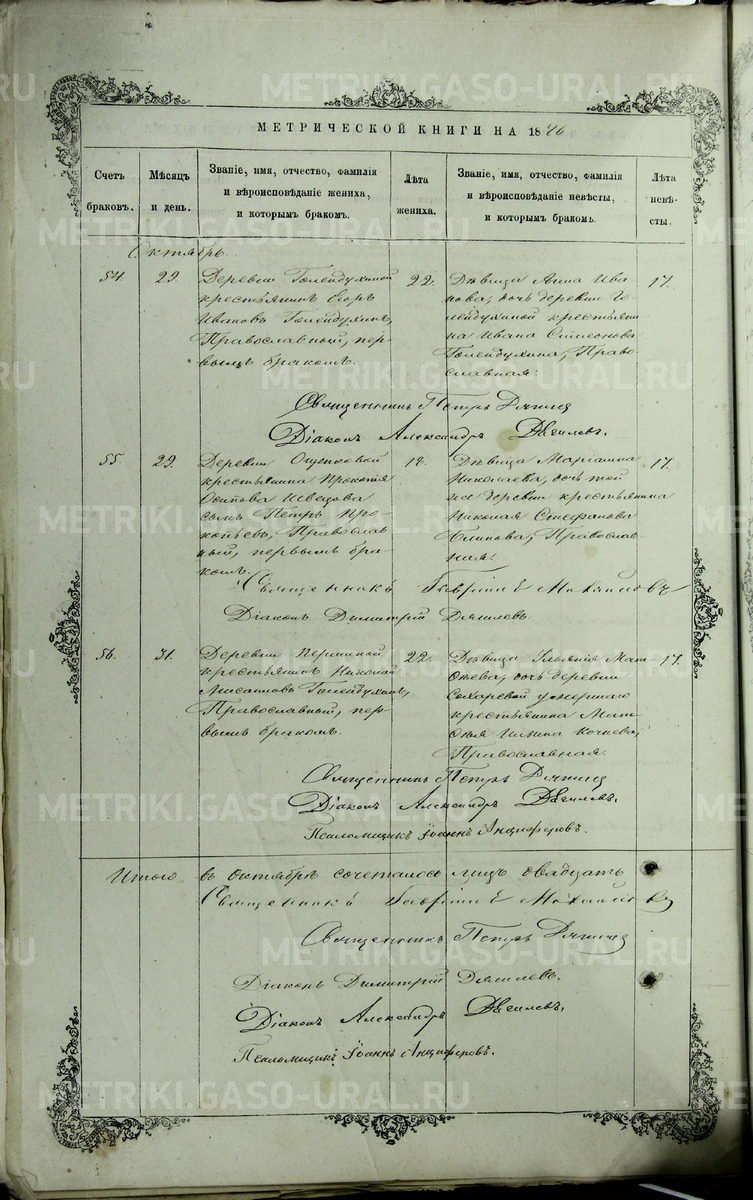 МЕТРИЧЕСКОЙ КНИГИ НА 18
Счетъ браковъ.
Мѣсяцъ и день.
Званіе, имя, отчество, фамилія
и вѣроисповѣданіе жениха,
и которымъ бракомъ.
Лѣта жениха.
Званіе, имя, отчество, фамилія
и вѣроисповѣданіе невѣсты,
и которымъ бракомъ.
Лѣта невѣсты.
Октябрь.
54. 29.
Деревни Голендухиной
крестьянинъ Егоръ
Ивановъ Голендухинъ,
Православный, пер-
вымъ бракомъ.
22.
Дѣвица Анна Ива-
нова, дочь деревни Го-
лендухиной крестьяни-
на Ивана Симеонова
Голендухина, Право-
славная.
17.
Священникъ Петръ
Діаконъ Александръ Дягилевъ.
55. 29.
Деревни Ощепковой
крестьянина Прокопія
Осипова Швецова
сынъ Петръ Про-
копьевъ, Православ-
ный, первымъ бра-
комъ.
18.
Дѣвица Маріамна
Николаева, дочь той
же деревни крестьянина
Николая Стефанова
Православ-
ная.
17.
Священникъ Гавріилъ
Діаконъ Димитрій Дягилевъ.
56. 31.
Деревни Першиной
крестьянинъ Николай
Мисаиловъ Голендухинъ,
Православный, пер-
вымъ бракомъ.
22.
Дѣвица Мат-
ѳеева, дочь деревни
Сохаревой умершаго
крестьянина Мат-
ѳея Ильина Кочнева,
Православная.
17.
Священникъ Петръ
Діаконъ Александръ Дягилевъ.
Псаломщикъ Іоаннъ Анциферовъ.
Итого въ октябрѣ сочеталось лицъ двадцать
Священникъ Гавріилъ
Священникъ Петръ
Діаконъ Димитрій Дягилевъ.
Діаконъ Александръ Дягилевъ.
Псаломщикъ Іоаннъ Анциферовъ.
METRIKI.GASO-URAL.RU